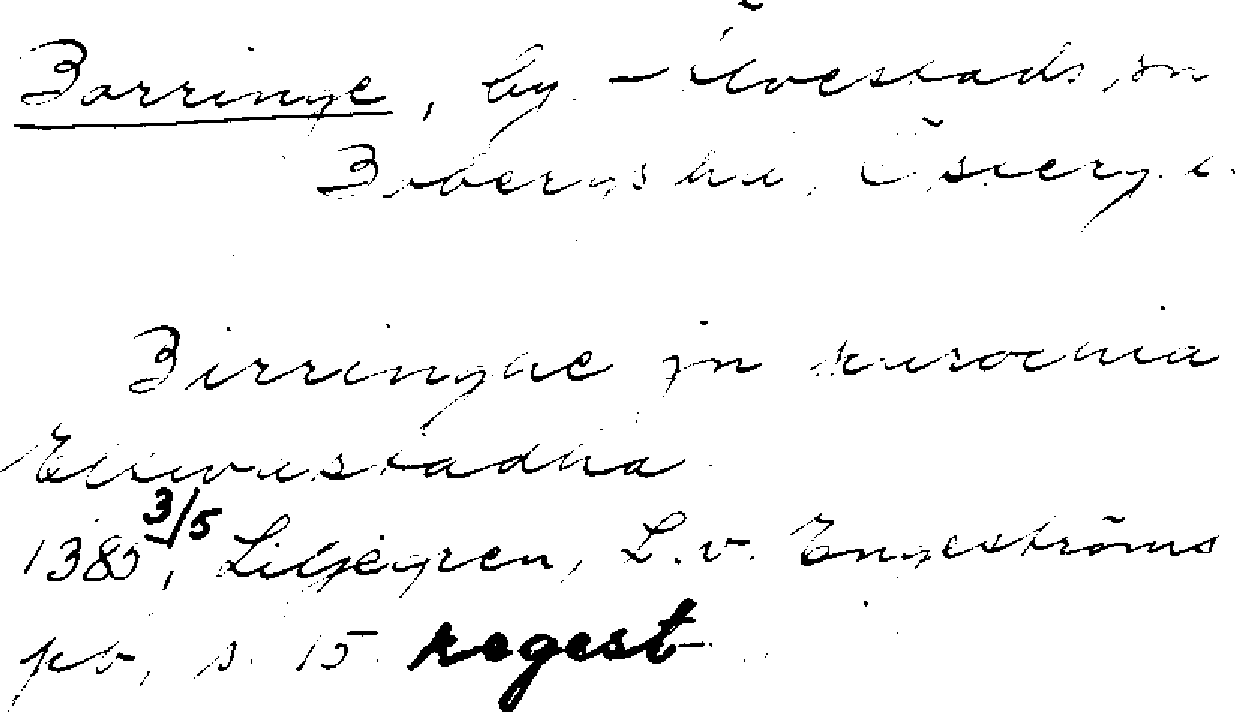 Borringe, by i Älvestads sn
Bobergs hd, Östergö.
Birringhe jn parochia
Elwastadha
1385 3/5, Liljegren, L. v. Engeströms
pb, s. 15 regest